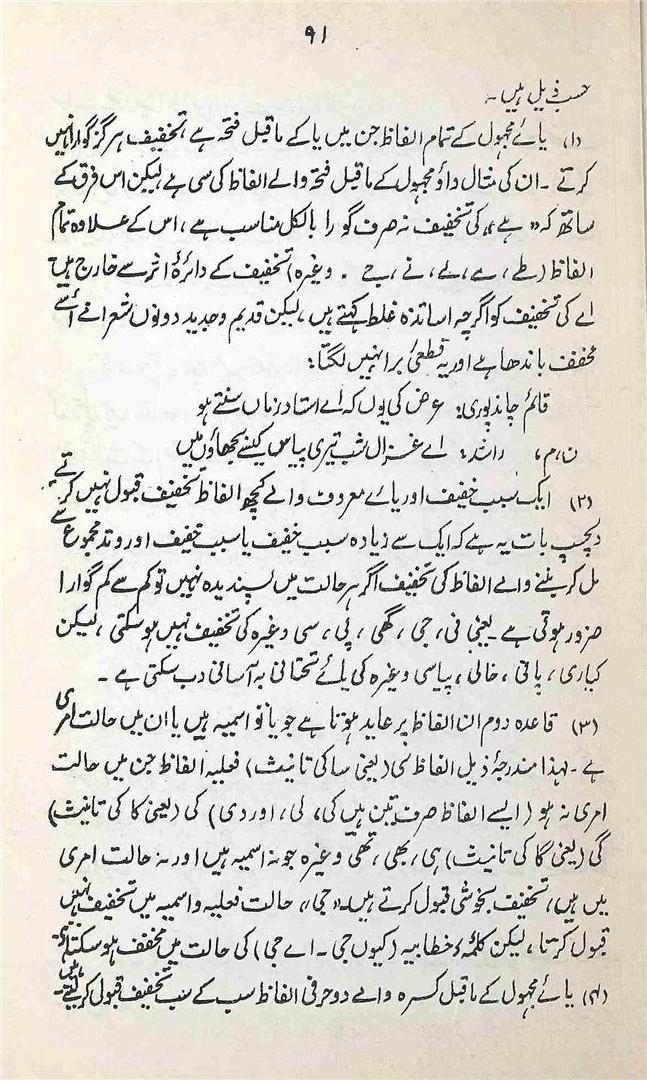 ۹۱
حسب ذیل ہیں۔
(۱) یائے مجہول کے تمام الفاظ جن میں یا کے ماقبل فتحہ ہے، تخفیف ہرگز گوارا نہیں
کرتے۔ ان کی مثال داؤ مجہول کے ماقبل فتحہ والے الفاظ کی سی ہے لیکن اس فرق کے
ساتھ کہ "ہے" کی تخفیف نہ صرف گوارا بالکل مناسب ہے، اس کے علاوہ تمام
الفاظ (طے، مے، لے، نے، جے ۔ وغیرہ) تخفیف کے دائرۂ اثر سے خارج ہیں
اے کی تخفیف کو اگرچہ اساتذہ غلط کہتے ہیں، لیکن قدیم و جدید دونوں شعرا نے اسے
مخفف باندھا ہے اور یہ قطعی برا نہیں لگتا:
قائم چاندپوری: عرض کی یوں کہ اے استاد زماں سنتے ہو
ن، م، راشد: اے غزال شب تیری پیاس کیسے بجھاؤں میں
(۲) ایک سبب خفیف اور یائے معروف والے کچھ الفاظ تخفیف قبول نہیں کرتے
دلچسپ بات یہ ہے کہ ایک سے زیادہ سبب خفیف یا سبب خفیف اور وتد مجموع سے
مل کر بننے والے الفاظ کی تخفیف اگر ہر حالت میں پسندیدہ نہیں تو کم سے کم گوارا
ضرور ہوتی ہے۔ یعنی فی، جی، گھی، پی، سی وغیرہ کی تخفیف نہیں ہو سکتی، لیکن
کیاری، پانی، خالی، پیاسی وغیرہ کی یائے تحتانی بہ آسانی دب سکتی ہے۔
(۳) قاعدہ دوم ان الفاظ پر عاید ہوتا ہے جو یا تو اسمیہ ہیں یا ان میں حالت امری
ہے۔ لہذا مندرجۂ ذیل الفاظ سی (یعنی سا کی تانیث) فعلیہ الفاظ جن میں حالت
امری نہ ہو (ایسے الفاظ صرف تین ہیں کی، لی، اور دی) کی (یعنی کا کی تانیث)
گی (یعنی گا کی تانیث) ہی، بھی، تھی وغیرہ جو نہ اسمیہ ہیں اور نہ حالت امری
میں ہیں، تخفیف بخوشی قبول کرتے ہیں۔ "جی"، حالت فعلیہ و اسمیہ میں تخفیف نہیں
قبول کرتا، لیکن کلمۂ خطابیہ (کیوں جی۔ اے جی) کی حالت میں مخفف ہو سکتا ہے۔
(۴) یائے مجہول کے ماقبل کسرہ والے دو حرفی الفاظ سب کے سب تخفیف قبول کر لیتے ہیں۔